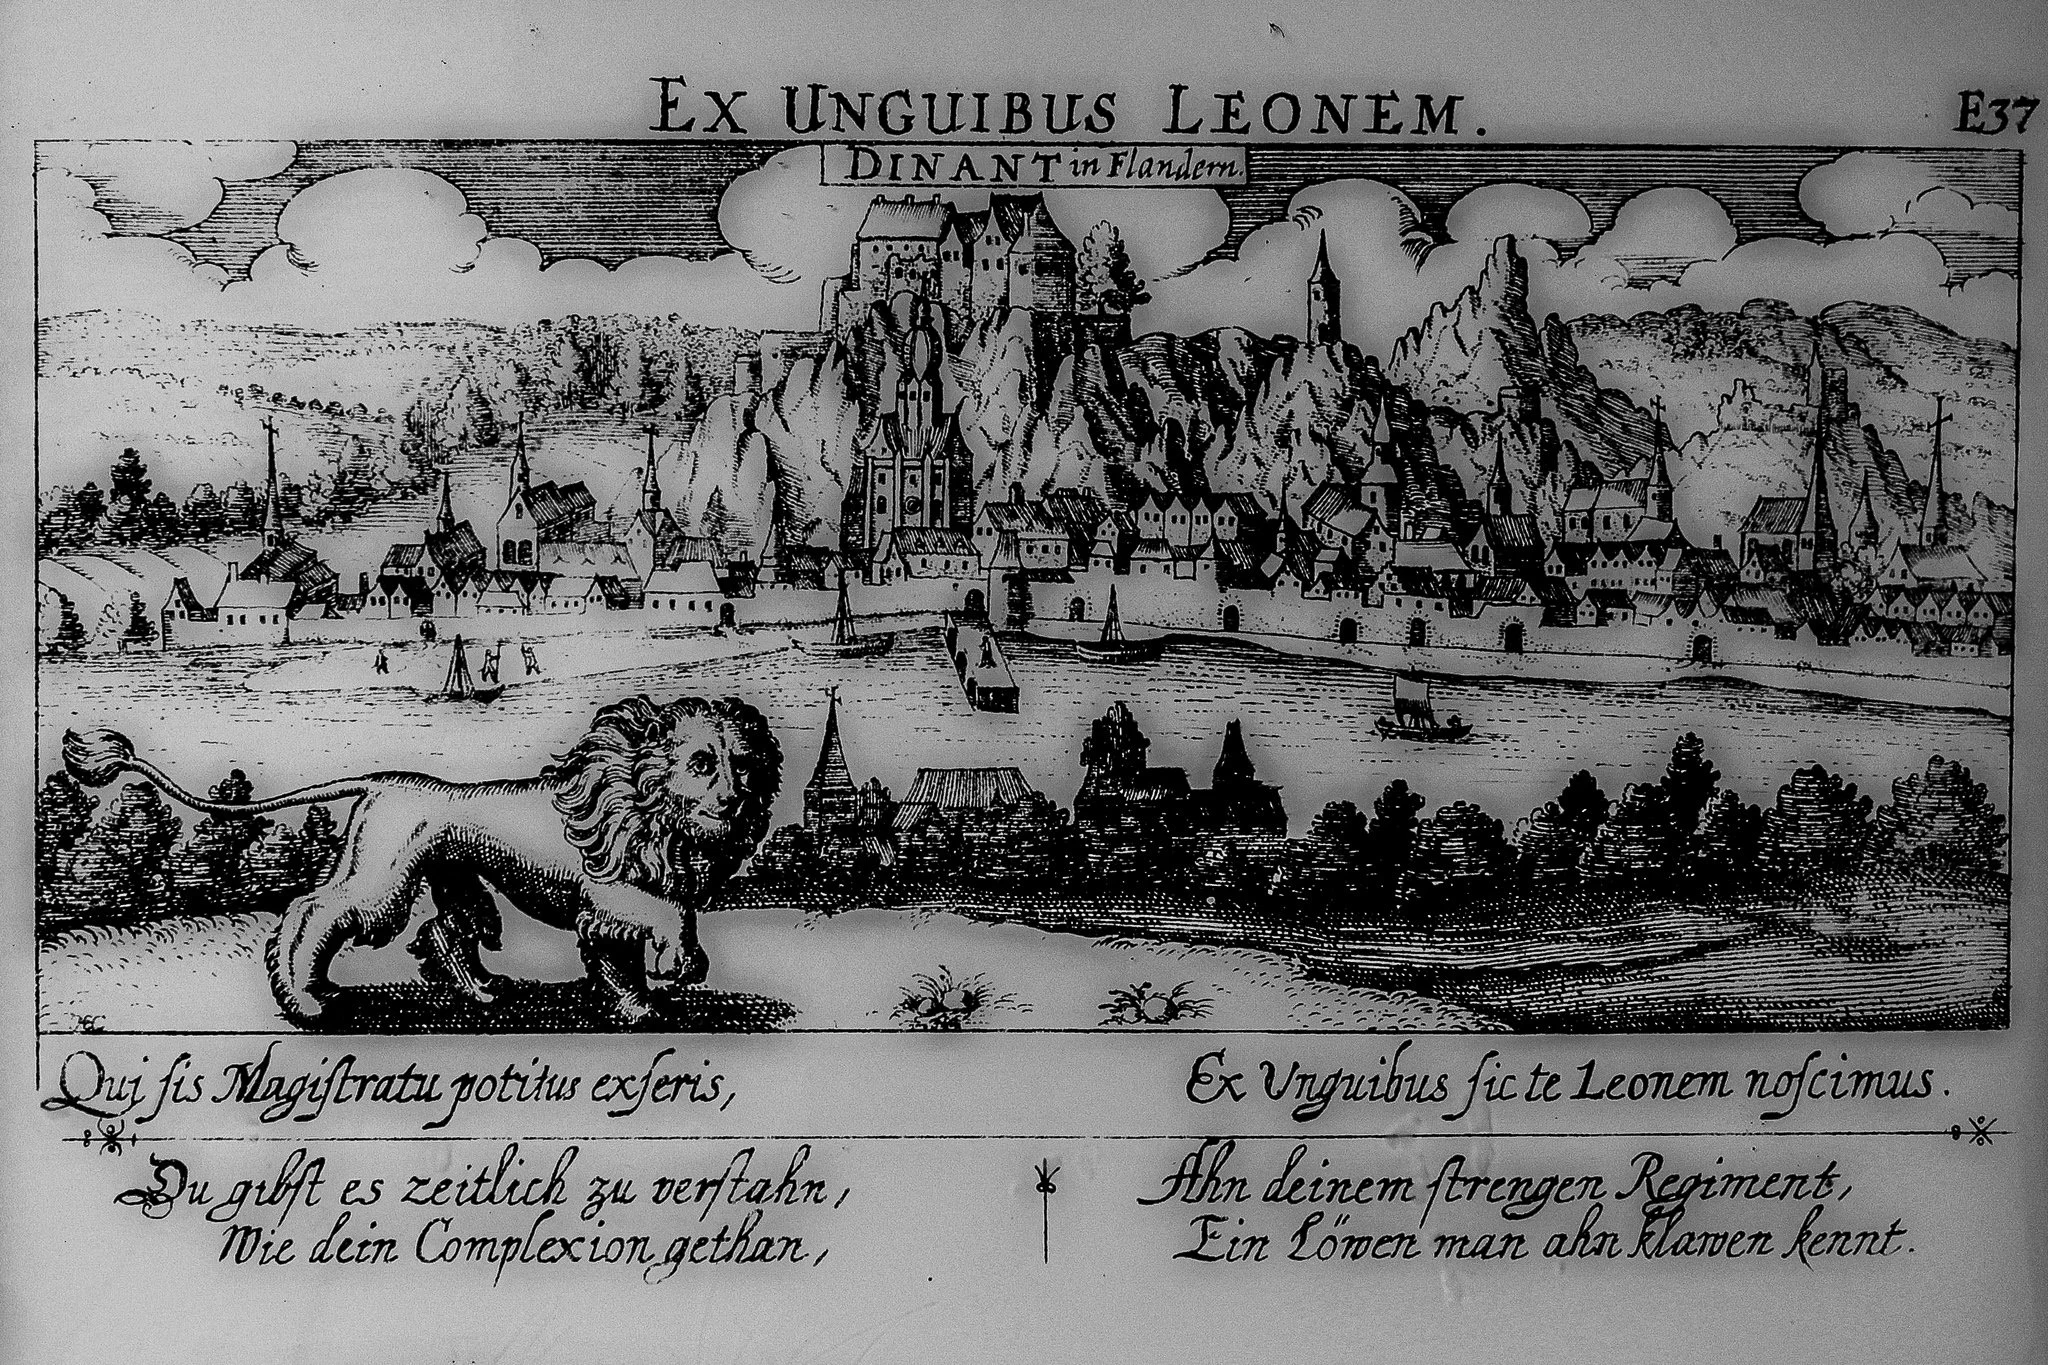 EX UNGUIBUS LEONEM.
E37
DINANT in Flandern.
Qui ſis Magiſtratu potitus exſeris,
Ex Unguibus ſic te Leonem noſcimus.
Du gibſt es zeitlich zu verſtahn,
Wie dein Complexion gethan,
Ahn deinem ſtrengen Regiment,
Ein Löwen man ahn klawen kennt.